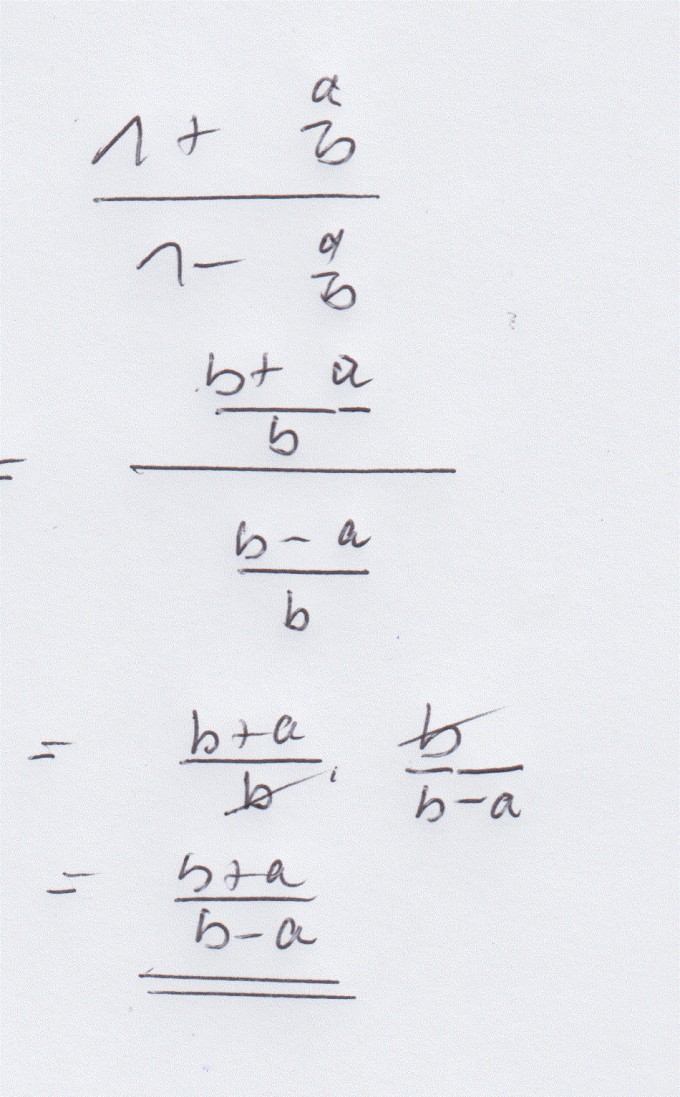 1 + a/b
1 - a/b
= b + a
b
b - a
b
= b + a / b · b / b - a
= b + a
b - a